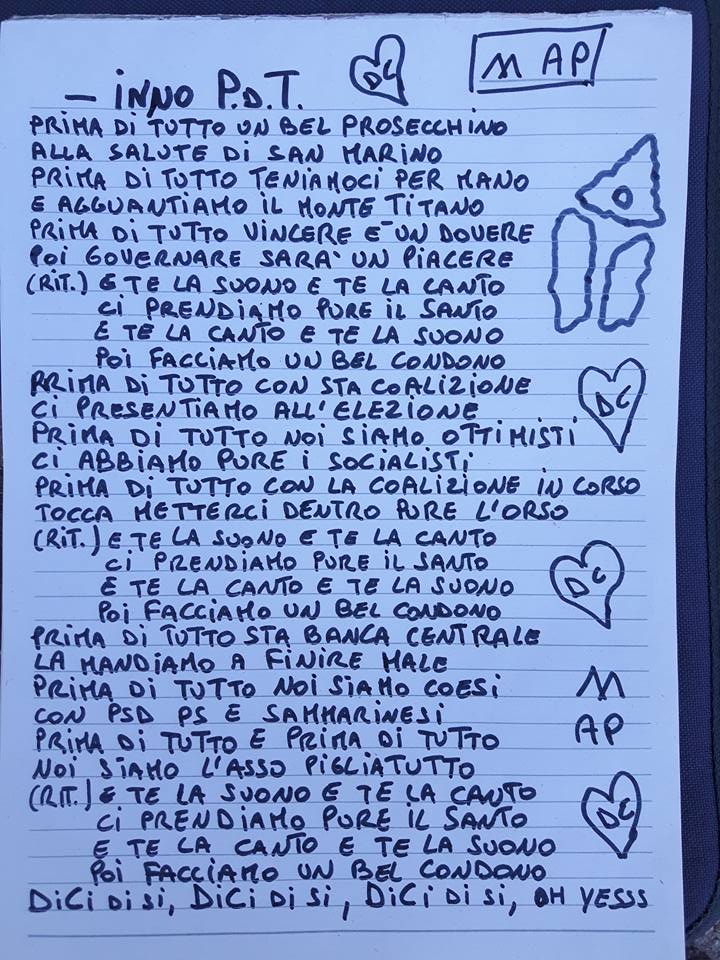 M AP
DC
- INNO P.D.T.
PRIMA DI TUTTO UN BEL PROSECCHINO
ALLA SALUTE DI SAN MARINO
PRIMA DI TUTTO TENIAMOCI PER MANO
E AGGUANTIAMO IL MONTE TITANO
PRIMA DI TUTTO VINCERE E' UN DOVERE
POI GOVERNARE SARA' UN PIACERE
(RIT.) E TE LA SUONO E TE LA CANTO
CI PRENDIAMO PURE IL SANTO
E TE LA CANTO E TE LA SUONO
POI FACCIAMO UN BEL CONDONO
PRIMA DI TUTTO CON STA COALIZIONE
DC
CI PRESENTIAMO ALL'ELEZIONE
PRIMA DI TUTTO NOI SIAMO OTTIMISTI
CI ABBIAMO PURE I SOCIALISTI
PRIMA DI TUTTO CON LA COALIZIONE IN CORSO
TOCCA METTERCI DENTRO PURE L'ORSO
(RIT.) E TE LA SUONO E TE LA CANTO
CI PRENDIAMO PURE IL SANTO
DC
E TE LA CANTO E TE LA SUONO
POI FACCIAMO UN BEL CONDONO
PRIMA DI TUTTO STA BANCA CENTRALE
LA MANDIAMO A FINIRE MALE
PRIMA DI TUTTO NOI SIAMO COESI
M
CON PSD PS E SAMMARINESI
AP
PRIMA DI TUTTO E PRIMA DI TUTTO
NOI SIAMO L'ASSO PIGLIATUTTO
(RIT.) E TE LA SUONO E TE LA CANTO
CI PRENDIAMO PURE IL SANTO
DC
E TE LA CANTO E TE LA SUONO
POI FACCIAMO UN BEL CONDONO
DiCi Di Si, DiCi Di Si, DiCi Di Si, OH YESSS